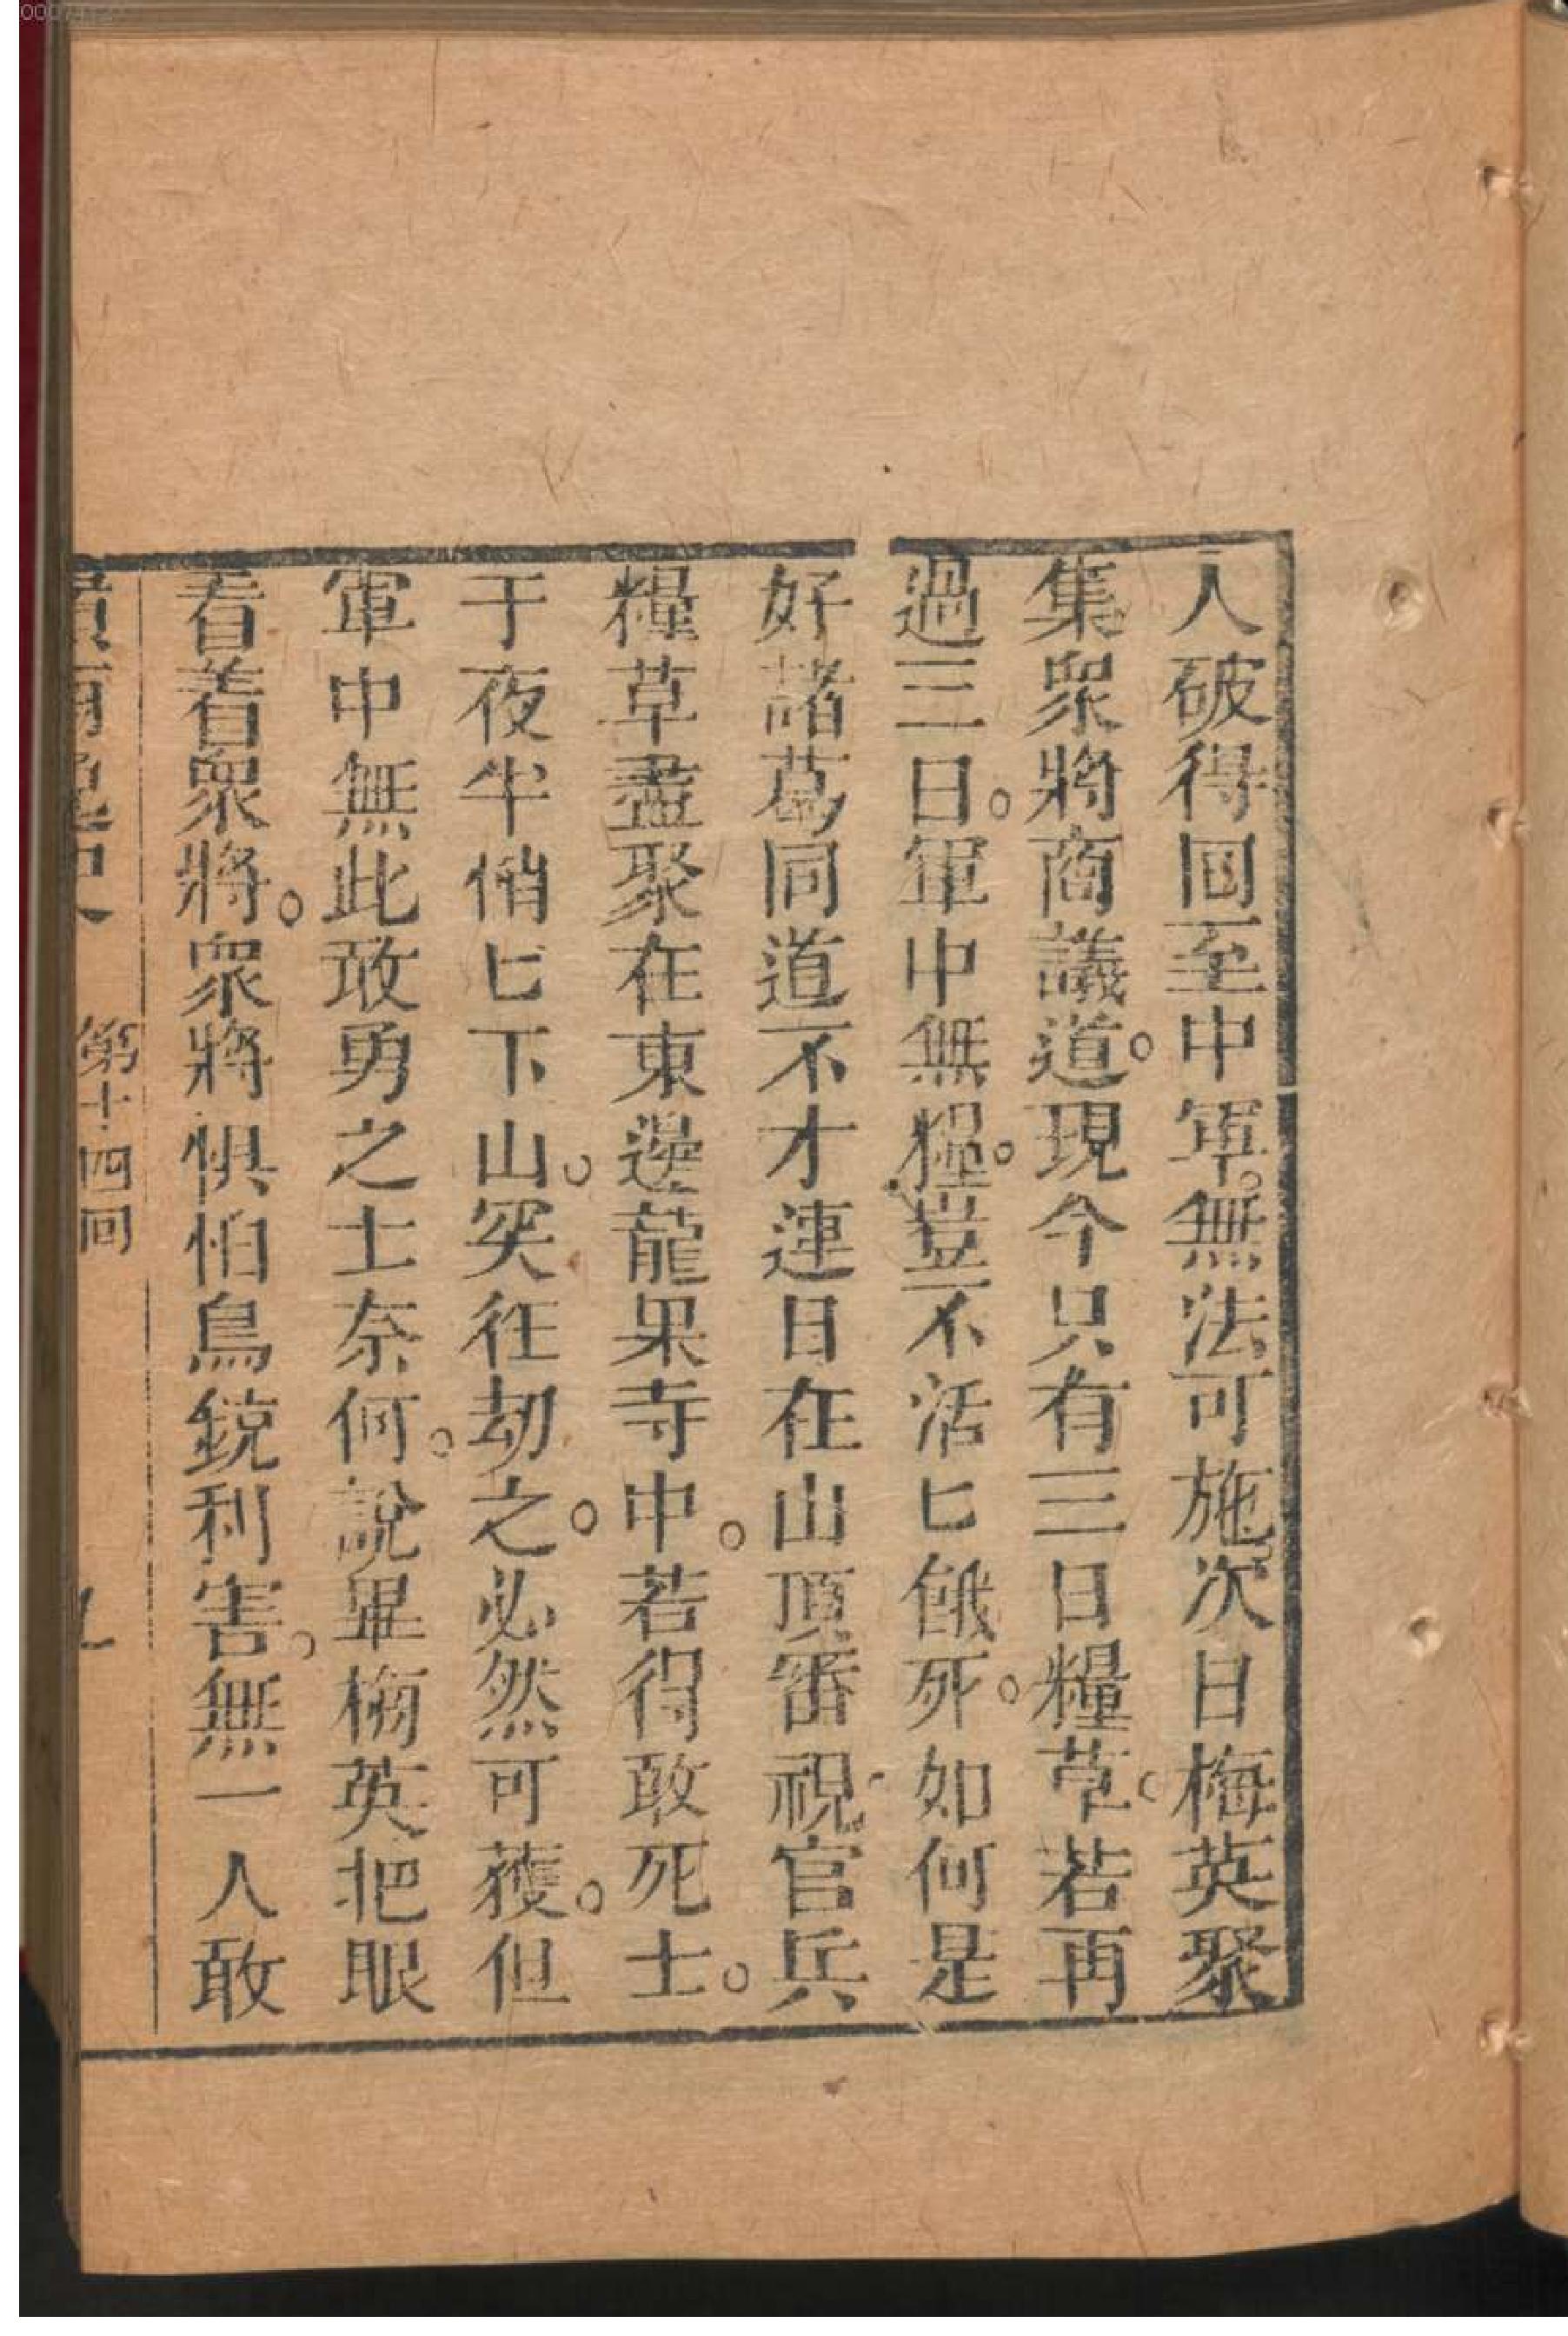 人破得囬至中軍。無法可施。次日梅英聚
集衆將商議道。現今只有三日糧草。若再
過三日。軍中無糧。豈不活匕餓死。如何是
好諸葛同道不才連日在山頂審視官兵
糧草盡聚在東邊龍果寺中。若得敢死士。
于夜半俏匕下山。突往劫之。必然可獲。但
軍中無此敢勇之士奈何。說畢梅英把眼
看着衆將。衆將惧怕鳥銃利害。無一人敢
第十四回